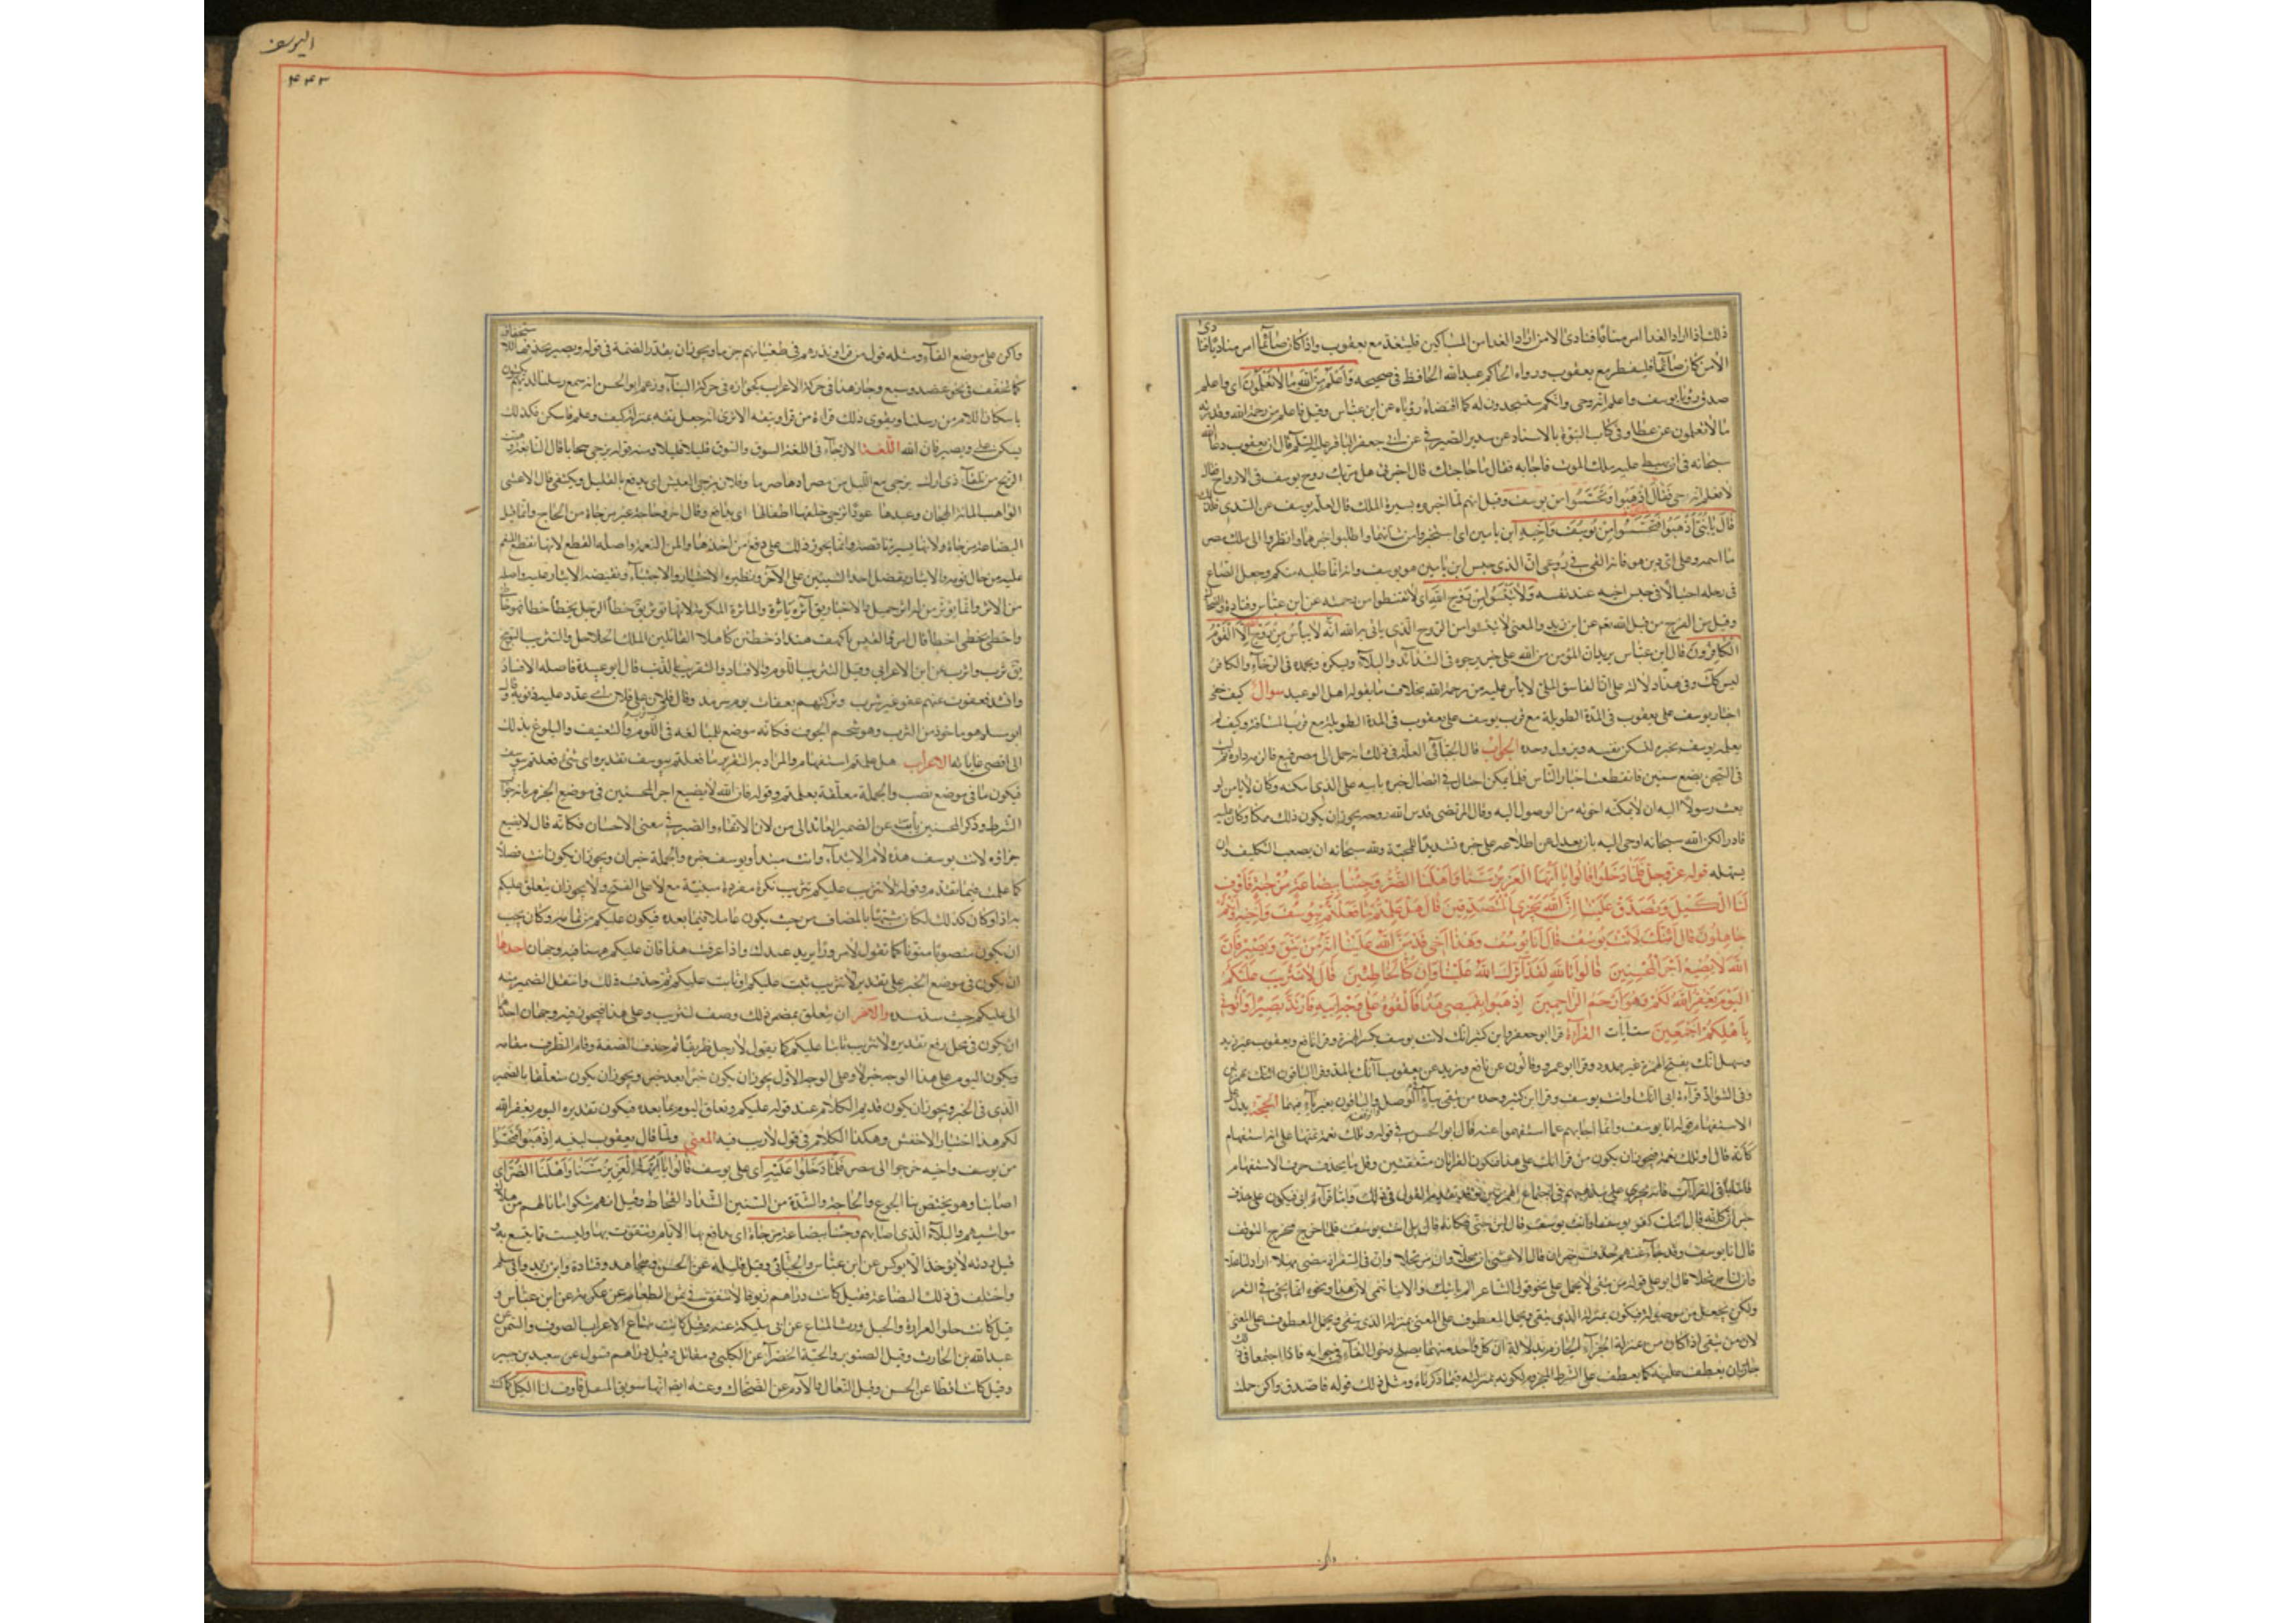 ذلك اذا اراد الغداء امر مناديا فنادى الا من اراد الغداء من المساكين فليتغد مع يعقوب واذا كان صائما امر مناديا فنا
دى
الا من كان صائما فليفطر مع يعقوب ورواه الحاكم عبدالله الحافظ فى صحيحه وَاَعْلَمُ مِنَ اللهِ مَا لَا تَعْلَمُونَ اى واعلم
صدق رؤيا يوسف واعلم انه حى وانكم ستسجدون له كما اقتضاه رؤياه عن ابن عباس وقيل واعلم من رحمة الله وقدرته
ما لا تعلمون عن عطا وفى كتاب النبوة بالاسناد عن سدير الصيرفى عن ابى جعفر الباقر عليه السلم قال ان يعقوب دعا الله
سبحانه فى ان يهبط عليه ملك الموت فاجابه فقال ما حاجتك قال اخبرنى هل مر بك روح يوسف فى الارواح فقال
لا فعلم انه حى فقال اذْهَبُوا فَتَحَسَّسُوا مِنْ يوسف وقيل انهم لما اخبروه بسيرة الملك قال لعله يوسف عن السدى فلذلك
قال يَا بَنِيَّ اذْهَبُوا فَتَحَسَّسُوا مِنْ يُوسُفَ وَاَخِيهِ ابن يامين اى استخبروا من شانهما واطلبوا خبرهما وانظروا الى ملك مصر
ما اسمه وعلى اى دين هو فانه القى فى روعى ان الذى حبس ابن يامين هو يوسف وانما طلبه منكم وجعل الصاع
فى رحله احتيالا فى حبس اخيه عند نفسه وَلَا تَيْئَسُوا مِنْ رَوْحِ اللهِ اى لا تقنطوا من رحمته عن ابن عباس وقتادة والضحاك
وقيل من الفرج من قبل الله نعم عن ابن زيد والمعنى لا تيئسوا من الروح الذى ياتى به الله اِنَّهُ لَا يَيْاَسُ مِنْ رَوْحِ اللهِ اِلَّا الْقَوْمُ
الْكَافِرُونَ قال ابن عباس يريد ان المؤمن من الله على خير يرجوه فى الشدائد والبلاء ويشكره ويحمده فى الرخاء والكافر
ليس كك وفى هذا دلالة على ان الفاسق الملى لا ياس عليه من رحمة الله بخلاف ما يقوله اهل الوعيد سوال كيف خفى
اخبار يوسف على يعقوب فى المدة الطويلة مع قرب المسافة وكيف لم
يعلمه يوسف بخبره لتسكن نفسه ويزول وجده الجواب قال الجبائى العلة فى ذلك انه حمل الى مصر فبيع
فى السجن بضع سنين فانقطعت اخبار الناس فلما تمكن احتال فى ايصال خبره بابيه على الذى امكنه وكان لا يامن لو
بعث رسولا اليه ان لا يمكنه اخوته من الوصول اليه وقال المرتضى قدس الله روحه يجوز ان يكون ذلك ممكنا وكان عليه
قادرا لكن الله سبحانه اوحى اليه بان يعدل عن اطلاعه على خبره تشديدا للمحنة ولله سبحانه ان يصعب التكليف وان
يسهله قوله عز وجل فَلَمَّا دَخَلُوا عَلَيْهِ قَالُوا يَا اَيُّهَا الْعَزِيزُ مَسَّنَا وَاَهْلَنَا الضُّرُّ وَجِئْنَا بِبِضَاعَةٍ مُزْجٰيةٍ فَاَوْفِ
لَنَا الْكَيْلَ وَتَصَدَّقْ عَلَيْنَا اِنَّ اللهَ يَجْزِي الْمُتَصَدِّقِينَ قَالَ هَلْ عَلِمْتُمْ مَا فَعَلْتُمْ بِيُوسُفَ وَاَخِيهِ اِذْ اَنْتُمْ
جَاهِلُونَ قَالُوا ءَاِنَّكَ لَاَنْتَ يُوسُفُ قَالَ اَنَا يُوسُفُ وَهٰذَا اَخِي قَدْ مَنَّ اللهُ عَلَيْنَا اِنَّهُ مَنْ يَتَّقِ وَيَصْبِرْ فَاِنَّ
اللهَ لَا يُضِيعُ اَجْرَ الْمُحْسِنِينَ قَالُوا تَاللهِ لَقَدْ آثَرَكَ اللهُ عَلَيْنَا وَاِنْ كُنَّا لَخَاطِئِينَ قَالَ لَا تَثْرِيبَ عَلَيْكُمُ
الْيَوْمَ يَغْفِرُ اللهُ لَكُمْ وَهُوَ اَرْحَمُ الرَّاحِمِينَ اِذْهَبُوا بِقَمِيصِي هَذَا فَاَلْقُوهُ عَلَى وَجْهِ اَبِي يَاْتِ بَصِيرًا وَاْتُونِي
بِاَهْلِكُمْ اَجْمَعِينَ ست ايات القراءة قرا ابو جعفر وابن كثير انك لانت يوسف بكسر الهمزة وقرا نافع ويعقوب غير زيد
وسهل انك بفتح الهمزة غير ممدود وقرا ابو عمرو وقالون عن نافع وزيد عن يعقوب آنك بالمد وقرا الباقون ائنك بهمزتين
وفى الشواذ قراءة ابى ائنك او انت يوسف وقرا ابن كثير وحده من يتقى بياء فى الوصل والباقون بغير ياء فيهما الحجة يدل على
الاستفهام قوله انا يوسف وانما اجابهم عما استفهموا عنه قال ابو الحسن فى قوله وتلك نعمة تمنها على انه استفهام
كانه قال او تلك نعمة فيجوز ان يكون من قرا انك على هذا فتكون القراءتان متفقتين وقل ما يحذف حرف الاستفهام
خبر ان كانه قال ائنك لغير يوسف او انت يوسف قال ابن جنى فكانه قال بل انت يوسف فلما خرج مخرج التوقف
قال انا يوسف وقد جاء عنهم حذف خبر ان قال الاعشى ان محلا وان مرتحلا وان فى السفر اذ مضى مهلا اراد ان لنا محلا
وان لنا مرتحلا قال ابو على قوله من يتقى لا يحمل على نحو قول الشاعر الم ياتيك والانباء تنمى لان هذا ونحوه انما يجئ فى الشعر
ولكن تجعل من موصولة فيكون بمنزلة الذى يتقى ويحمل المعطوف على المعنى
لان من يتقى اذا كان من بمنزلة الذى
جاز ان يعطف عليه كما يعطف على الشرط المجزوم لكونه بمنزلته فيما ذكرناه ومثل ذلك قوله فاصدق واكن حمله
اليوسف
۴۴۳
واكن على موضع الفاء ومثله قول من قرا ويذرهم فى طغيانهم جزما ويجوز ان يقدر الضمة فى قوله ويصبر فيحذفها
استخفافا
كما يخفف فى نحو عضد وسبع وجاز هذا فى حركة الاعراب كجوازه فى حركة البناء وزعم ابو الحسن انه سمع رسلنا لديهم يكتبون
باسكان اللام من رسلنا ويقوى ذلك قراءة من قرا ويتقه الا ترى انه جعل تقه بمنزلة كتف وعلم فاسكن فكذلك
يسكن على ويصبر فان الله اللغة الازجاء فى اللغة السوق والسوق قليلا قليلا ومنه قوله يزجى سحابا قال النابغة وهبت
الريح من تلقاء ذى ارل تزجى مع الليل من صرادها صرما وفلان يزجى العيش اى يدفع بالقليل ويكتفى قال الاعشى
الواهب المائة الهجان وعبدها عوذا تزجى خلفها اطفالها اى تدافع وقال اخر وحاجة غير مزجاة من الحاج
عليه من حال بؤسه والايثار تفضيل احد الشيئين على الآخر ونظيره الاختيار والاجتباء ونقيضه الايثار عليه واصله
واخطى يخطى اخطاء قال امرؤ القيس يا لهف هند اذ خطئن كاهلا القاتلين الملك الحلاحلا والتثريب التوبيخ
يق ثرب واثرب عن ابن الاعرابى وقيل التثريب اللوم والافساد والتقرير بالذنب قال ابو عبيدة واصله الافساد
وانشد فعفوت عنهم عفو غير مثرب وتركتهم لعقاب يوم سرمد وقال ثعلب ثرب فلان على فلان اى عدد عليه ذنوبه وقال
ابو مسلم هو ماخوذ من الثرب وهو شحم الجوف فكانه موضع للمبالغة فى اللوم والتعنيف والبلوغ بذلك
الى اقصى غاياتها الاعراب هل علمتم استفهام والمراد به التقرير ما فعلتم بيوسف تقديره اى شئ فعلتم بيوسف
فيكون ما فى موضع نصب والجملة معلقة بعلمتم وقوله فان الله لا يضيع اجر المحسنين فى موضع الجزم بانه جواب
الشرط وذكر المحسنين ناب عن الضمير العائد الى من لان الاتقاء والصبر فى معنى الاحسان فكانه قال لا يضيع
جزاؤه لانت يوسف هذه لام الابتداء وانت مبتدأ ويوسف خبره والجملة خبر ان ويجوز ان يكون انت فصلا
كما علمت فيما تقدم وقوله لا تثريب عليكم تثريب نكرة مفردة مبنية مع لا على الفتح ولا يجوز ان يتعلق عليكم
به اذ لو كان كذلك لكان مشبها بالمضاف من حيث يكون عاملا فيما بعده فيكون عليكم من تمامه وكان يجب
ان يكون منصوبا منونا كما تقول لا مرورا بزيد عندك واذا عرفت هذا فان عليكم ههنا فيه وجهان احدهما
ان يكون فى موضع الخبر على تقدير لا تثريب ثبت عليكم او ثابت عليكم ثم حذف ذلك وانتقل الضمير منه
الى عليكم حيث سد مسده والآخر ان يتعلق بمضمر ذلك وصف لتثريب وعلى هذا فيجوز فيه وجهان احدهما
ان يكون فى محل رفع تقديره لا تثريب ثابتا عليكم كما يقول لا رجل ظريفا ثم حذف الصفة وقام الظرف مقامه
ويكون اليوم على هذا الوجه خبر لا وعلى الوجه الاول يجوز ان يكون خبرا بعد خبر ويجوز ان يكون متعلقا بالضمير
الذى فى الخبر ويجوز ان يكون قد تم الكلام عند قوله عليكم وتعلق اليوم بما بعده فيكون تقديره اليوم يغفر الله
لكم هذا اختيار الاخفش وهكذا الكلام فى قول لا ريب فيه المعنى ولما قال يعقوب لبنيه اذْهَبُوا فَتَحَسَّسُوا
من يوسف واخيه خرجوا الى مصر فَلَمَّا دَخَلُوا عَلَيْهِ اى على يوسف قَالُوا يَا اَيُّهَا الْعَزِيزُ مَسَّنَا وَاَهْلَنَا الضُّرُّ اى
اصابنا ومن يختص بنا الجوع والحاجة والشدة من السنين الشداد القحاط وقيل انهم شكوا ما نالهم من هلاك
مواشيهم والبلاء الذى اصابهم وجئنا ببضاعة مزجاة اى ندافع بها الايام ونتقوت بها وليست مما يتسع به و
قيل رديئة لا تؤخذ الا بوكس عن ابن عباس والجبائى وقيل قليلة عن الحسن ومجاهد وقتادة وابن زيد
واختلف فى تلك البضاعة فقيل كانت دراهم زيوفا لا تنفق فى ثمن الطعام عن عكرمة عن ابن عباس و
قيل كانت خلق الغرارة والحبل ورث المتاع عن ابن ابى مليكة عنه وقيل كانت متاع الاعراب الصوف والسمن عن
عبدالله بن الحارث وقيل الصنوبر والحبة الخضراء عن الكلبى ومقاتل وقيل دراهم فسول عن سعيد بن جبير
وقيل كانت اقطا عن الحسن وقيل النعال والادم عن الضحاك وعنه ايضا انها سويق المقل فاوف لنا الكيل كما كنت